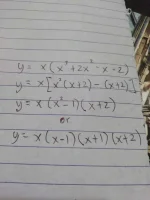 y = x(x³+2x²-x-2)
y = x[x²(x+2)-(x+2)]
y = x(x²-1)(x+2)
or
y = x(x-1)(x+1)(x+2)